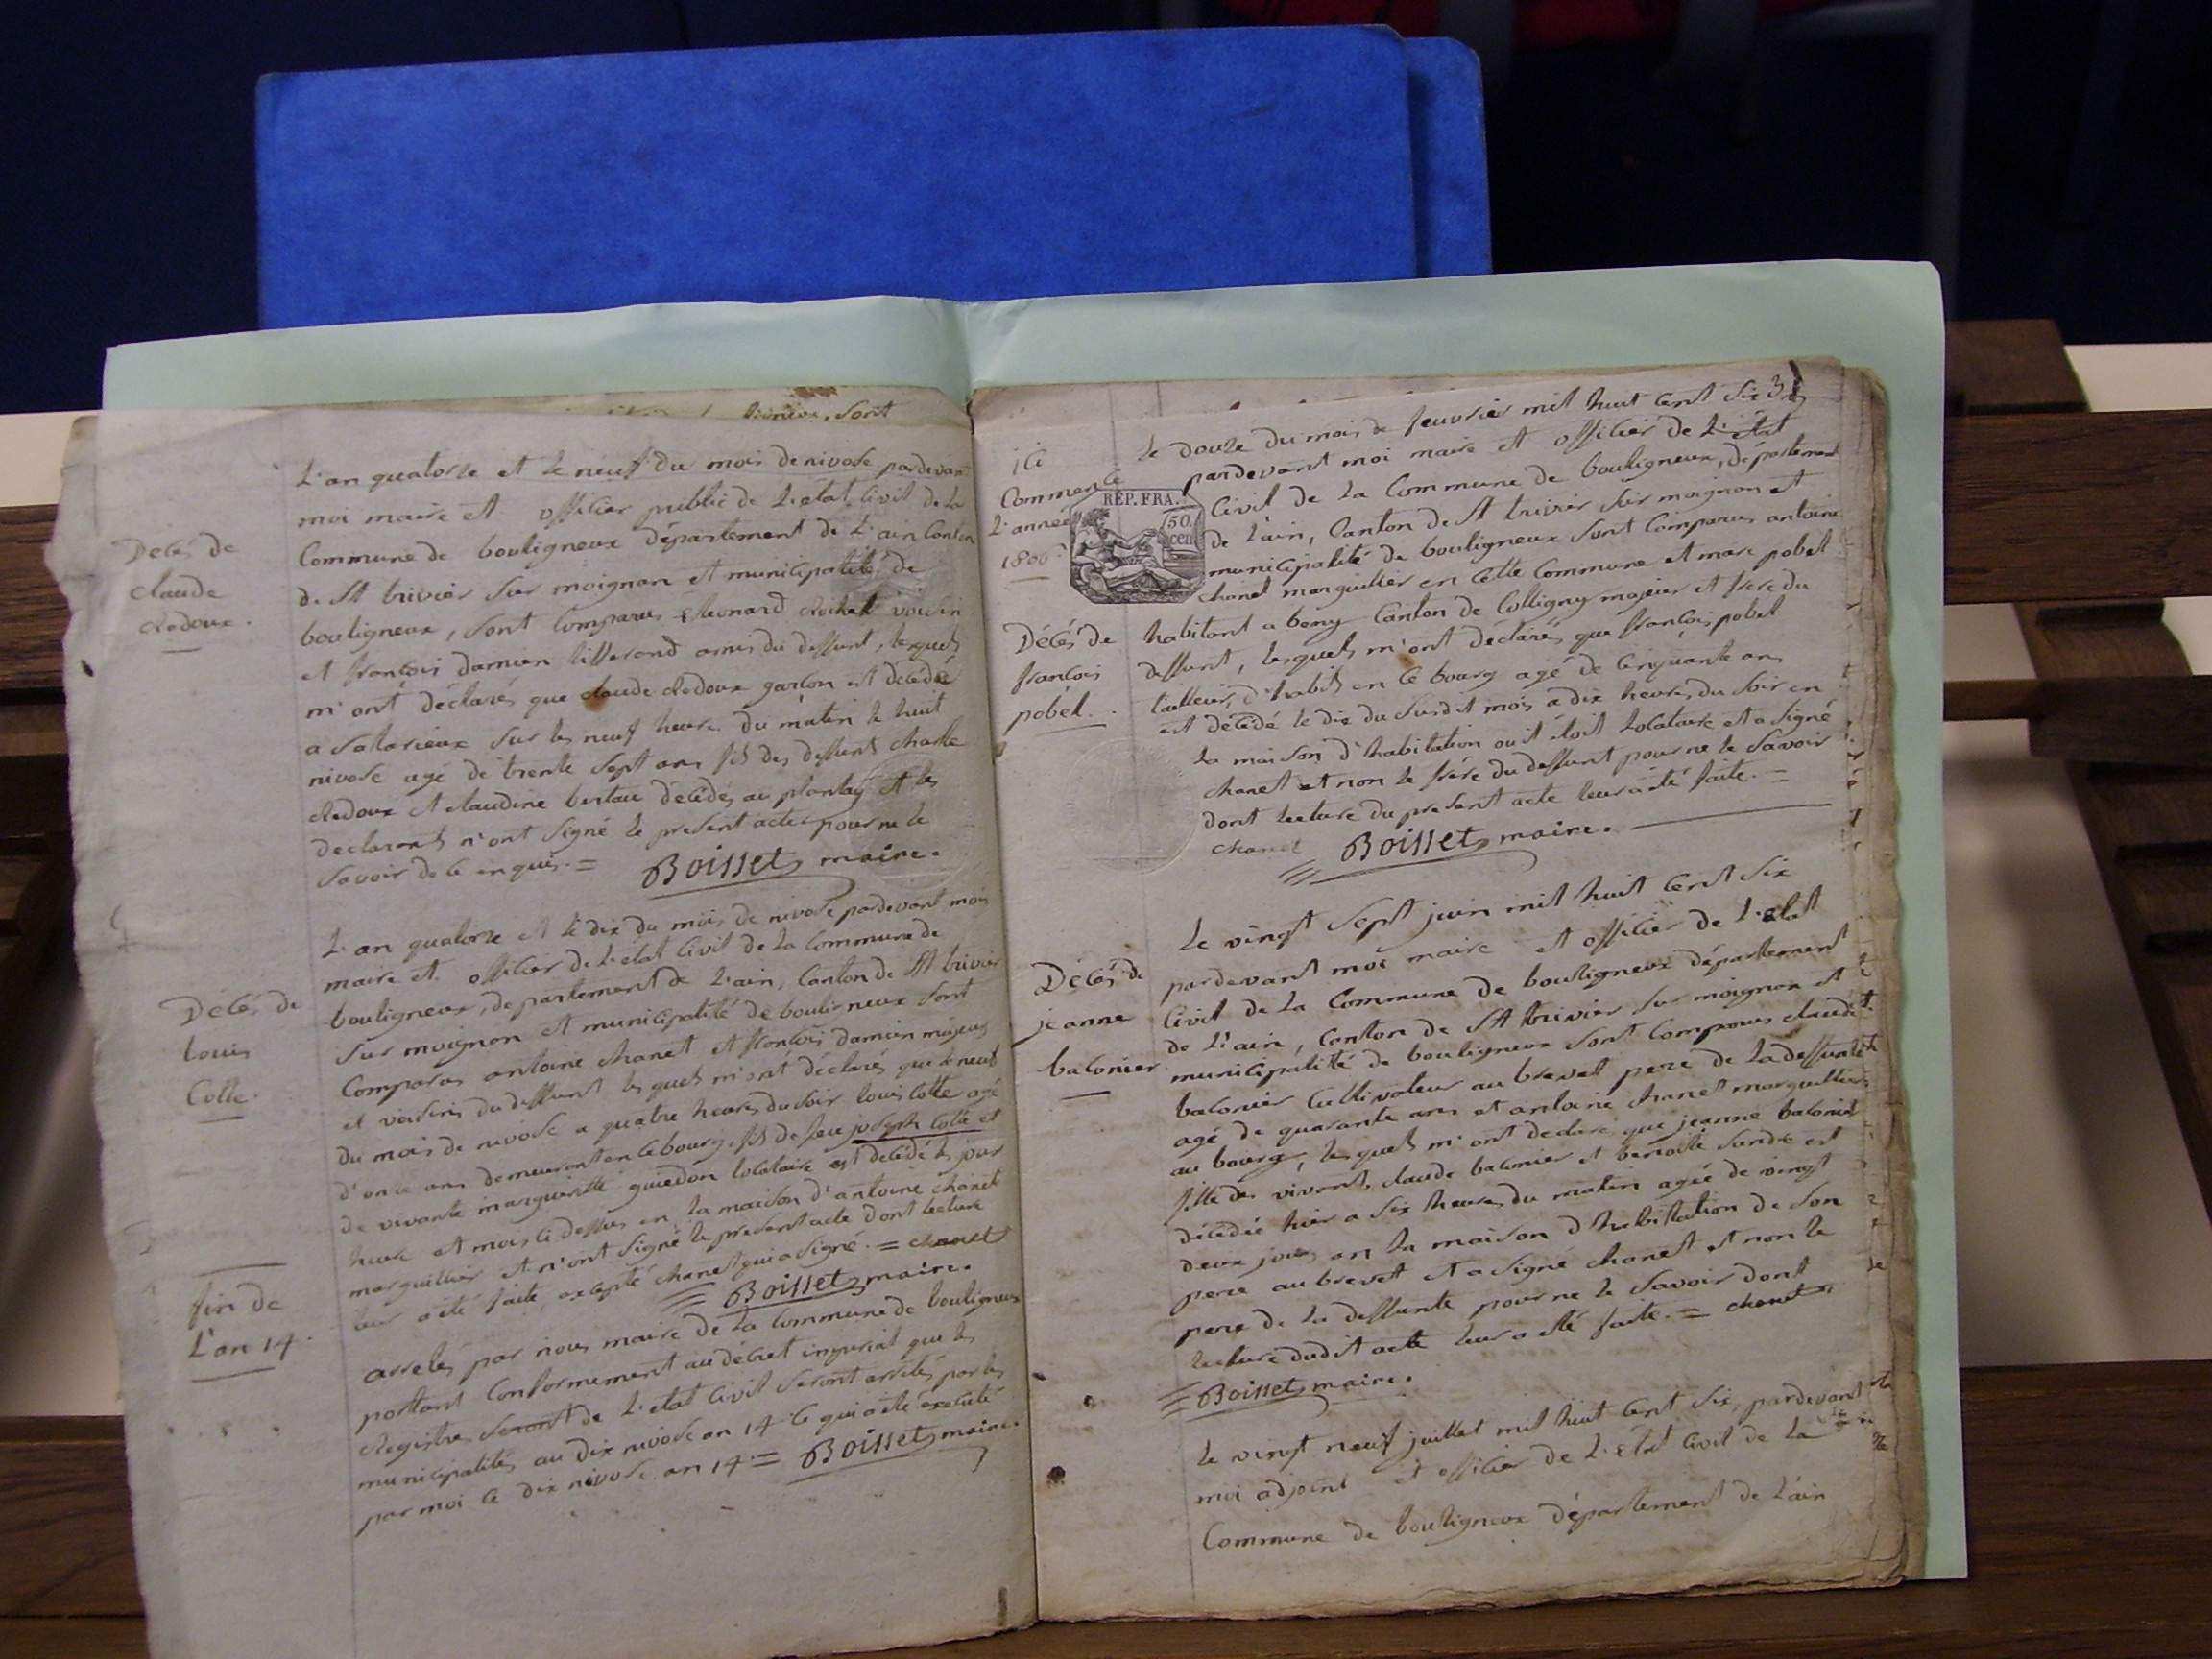 L'an quatorze et le neuf du mois de nivose pardevant
moi maire et officier public de l'etat civil de la
Commune de bouligneux département de l'ain Canton
de St trivier sur moignan et municipalité de
bouligneux, sont comparus Leonard voisin
et françois damien tisserand amis du deffunt, lesquels
m'ont déclarés que claude Redoux garçon est décédé
a sur les neuf heures du matin le huit
nivose agé de trente sept ans fils des deffunts charle
Redoux et claudine décédés au plantay et les
declarants n'ont signé le present acte pour ne le
savoir de ce enquis. = Boisset maire.
Décès de
claude
Redoux.
L'an quatorze et le dix du mois de nivose pardevant moi
maire et officier de l'état Civil de la Commune de
bouligneux, departement de l'ain, Canton de St trivier
sur moignan et municipalité de bouligneux sont
Comparus antoine chanet et françois damien majeurs
et voisins du deffunt lesquels m'ont déclarés que le neuf
du mois de nivose a quatre heures du soir louis Colle agé
d'onze ans demeurant en ce bourg, fils de feu joseph Colle et
de vivante marguerite guiedon locataire est décédé les jour
heure et mois ci dessus en la maison d'antoine chanet
marguillier et n'ont signé le present acte dont lecture
leur a été faite, excepté chanet qui a signé. = chanet
Boisset maire.
Décès de
louis
Colle.
arretés par nous maire de la Commune de bouligneux
portant Conformement au décret imperial que les
Registres seront de l'etat Civil seront arretés par les
municipalités au dix nivose an 14 ce qui a été executé
par moi ce dix nivose an 14 = Boisset maire.
fin de
L'an 14.
ici
Commence
L'année
1806
REP. FRA.
50
cen
le douze du mois de feuvrier mil huit cent six 3
pardevant moi maire et officier de l'état
Civil de la Commune de bouligneux, département
de l'ain, Canton de St trivier sur moignan et
municipalité de bouligneux sont Comparus antoine
chanet marguillier en cette Commune et marc pobel
habitant a beny Canton de Colligny majeur et frere du
deffunt, lesquels m'ont déclarés que françois pobel
tailleur, d'habits en ce bourg agé de cinquante ans
est décédé le dix du susdit mois a dix heures du soir en
la maison d'habitation ou il étoit locataire et a signé
chanet et non le frère du deffunt pour ne le savoir
dont lecture du present acte leur a été faite. =
chanet Boisset maire.
Décès de
françois
pobel.
le vingt sept juin mil huit cent six
pardevant moi maire et officier de l'etat
Civil de la Commune de bouligneux département
de l'ain, Canton de St trivier sur moignan et
municipalité de bouligneux sont Comparus claude
baconier Cultivateur au brevet pere de la deffunte
agé de quarante ans et antoine chanet marguillier
au bourg, lesquels m'ont declaré que jeanne baconier
fille des vivants claude baconier et benoite sandre est
décédée hier a six heures du matin agée de vingt
deux jours en la maison d'habitation de son
pere au brevet et a signé chanet et non le
pere de la deffunte pour ne le savoir dont
lecture dudit acte leur a été faite. = chanet
Boisset maire.
Décès de
jeanne
baconier
le vingt neuf juillet mil huit cent six, pardevant
moi adjoint et officier de l'etat Civil de la
Commune de bouligneux département de l'ain